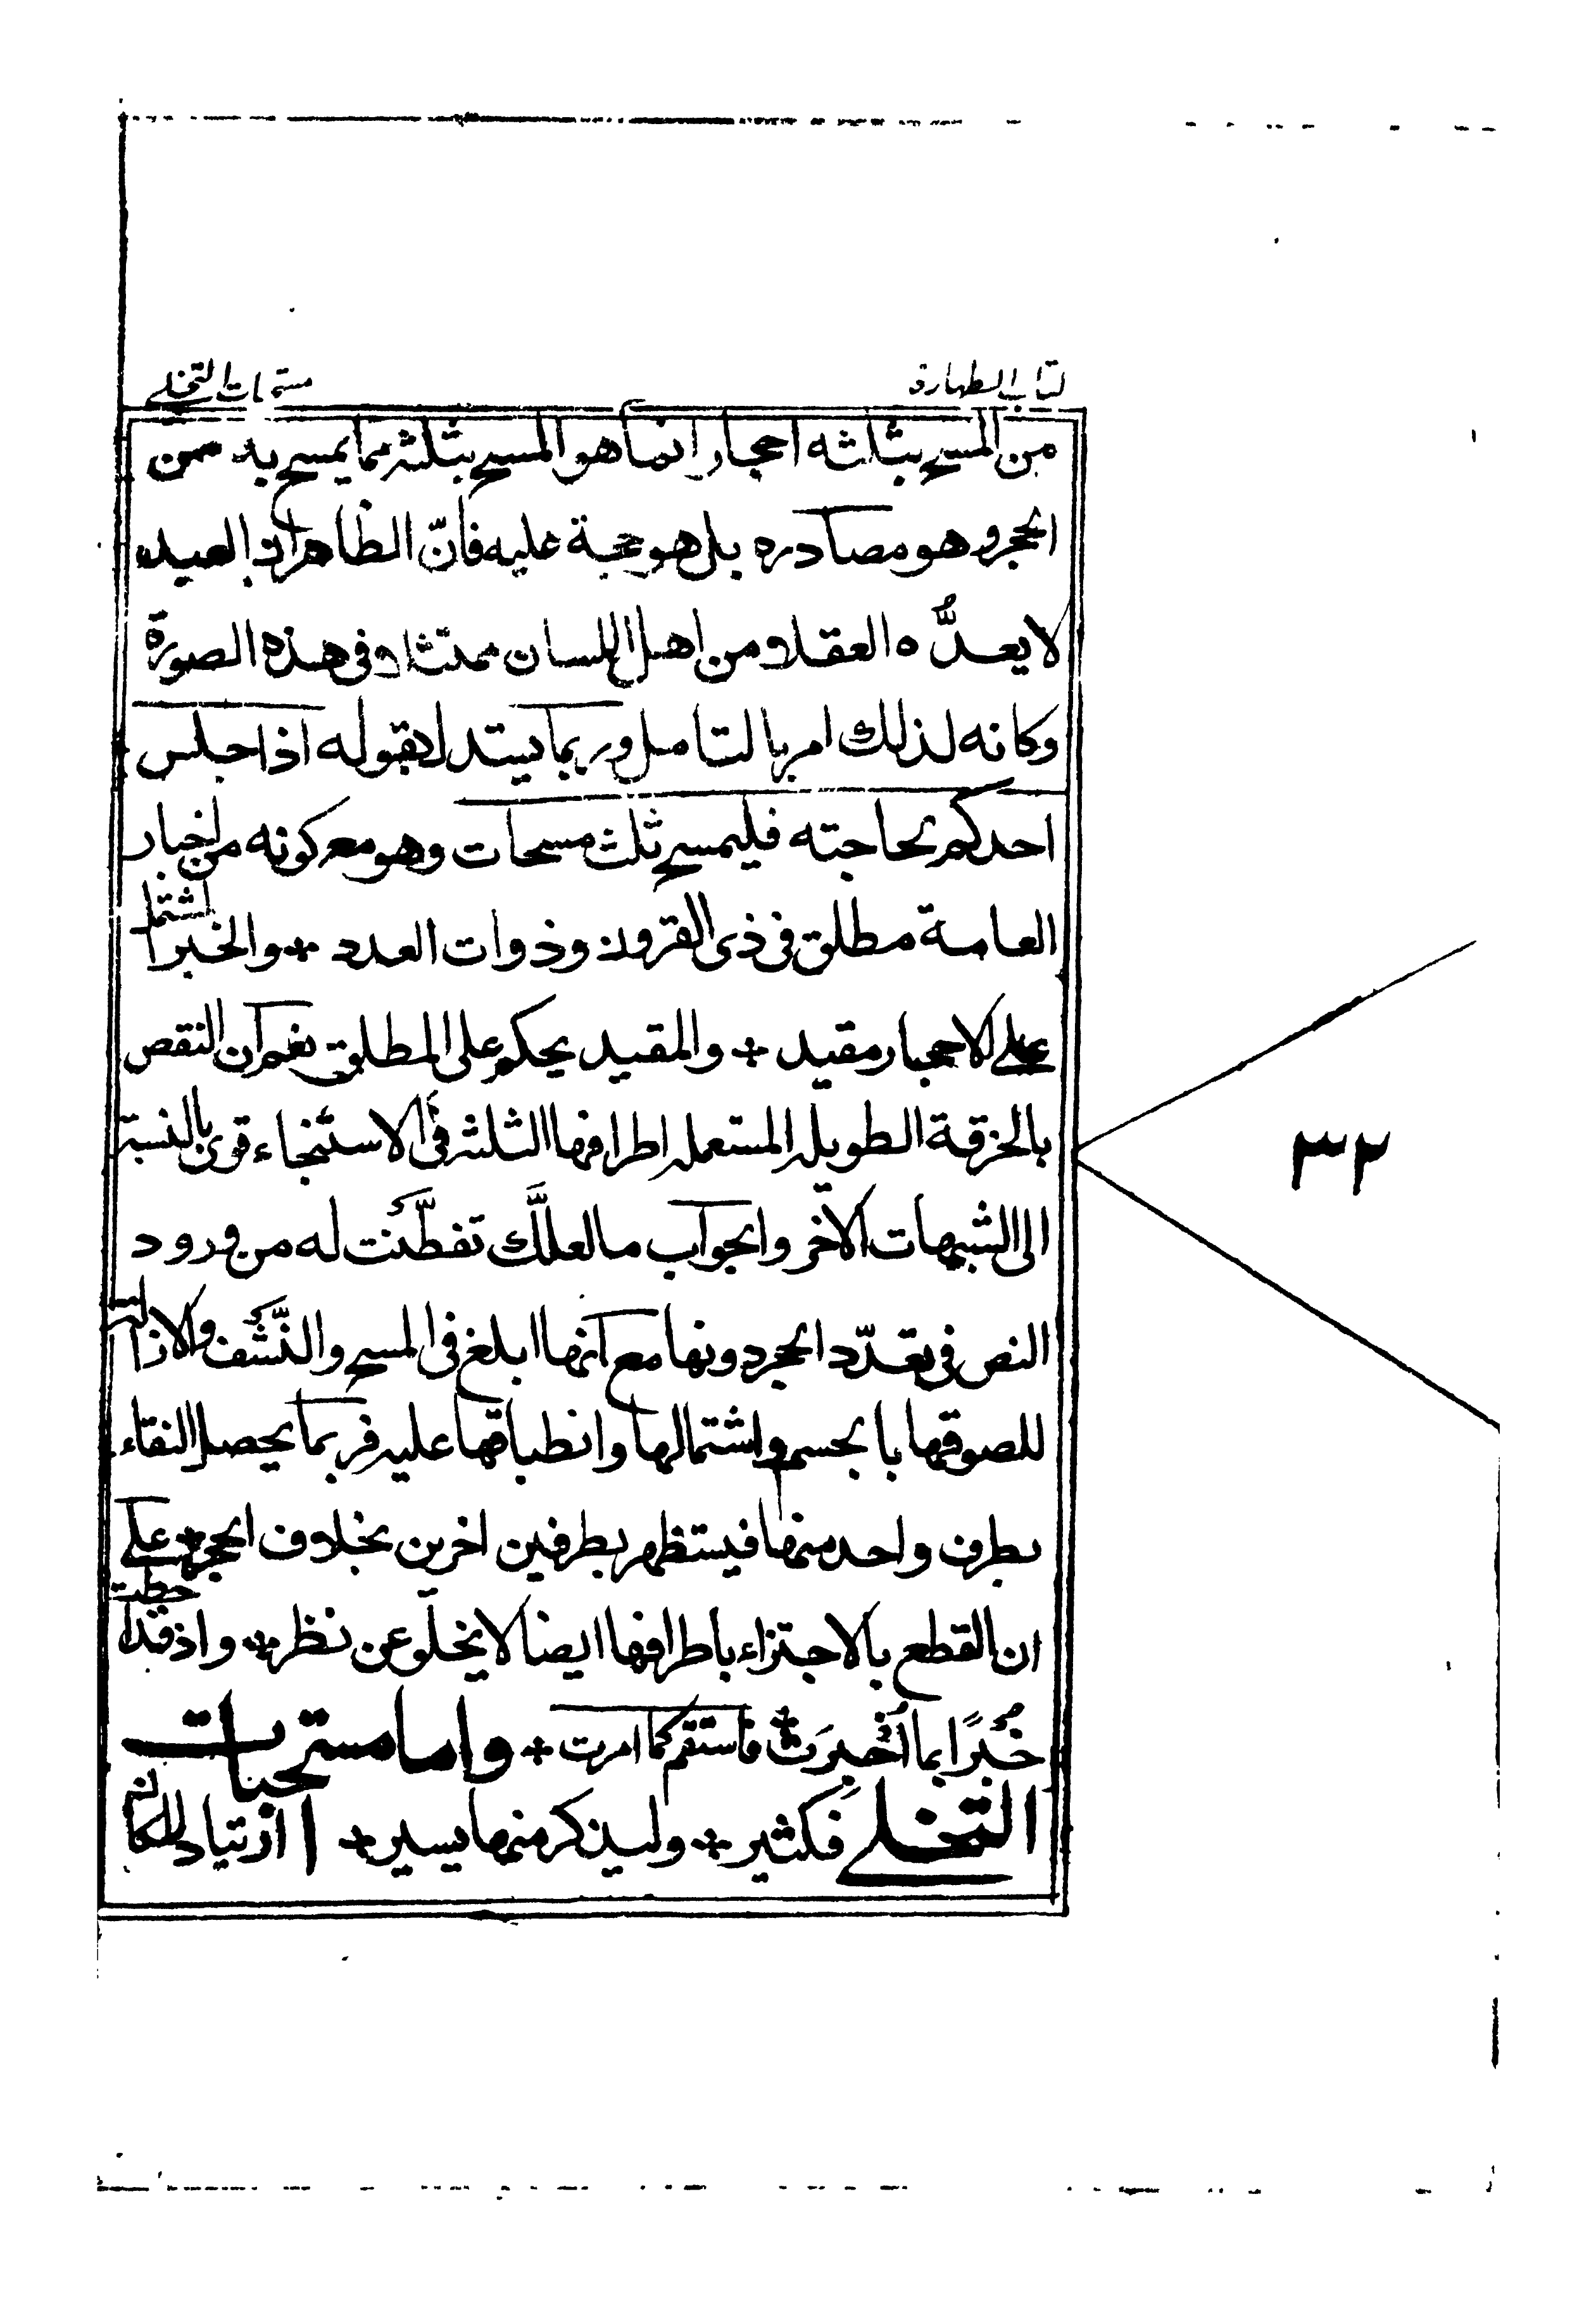 كتاب الطهارة
مستحبات التخلي
من المسح بثلثه احجار انما هو المسح بثلثه مما يمسح به من
الحجر وهو مصادره بل هو حجة عليه فانّ الظاهر ان العبيد
لا يعدُّه العقلاء من اهل اللسان ممتثلا و في هذه الصورة
وكانه لذلك امر بالتامل وربما يستدل بقوله اذا جلس
احدكم لحاجته فليمسح ثلث مسحات وهو مع كونه من اخبار
العامة مطلق في ذي القرون وذوات العدد * والخبر اشتمل
على الاحجار مقيد * والمقيد يحكم على المطلق نعم ان النقض
بالخرقة الطويله المستعمله اطرافها الثلثه في الاستنجاء قوى بالنسبة
الى الشبهات الاخر والجواب ما لعلَّك تفطَّنت له من ورود
النص في تعدّد الحجر دونها مع انها ابلغ في المسح والنَّشف والازالة
للصوقها بالجسم واشتمالها وانطباقها عليه فربما يحصل النقاء
بطرف واحد منها فيستظهر بطرفين اخرين بخلاف الحجر * على
ان القطع بالاجتزاء باطرافها ايضا لا يخلو عن نظر * واذ قد احطت
خُبرًا بما اُخبرتَ * فاستقم كما امرت * واما مستحبات
التخلي فكثير * ولنذكر منها يسير * ا ارتياد المكان
٣٢